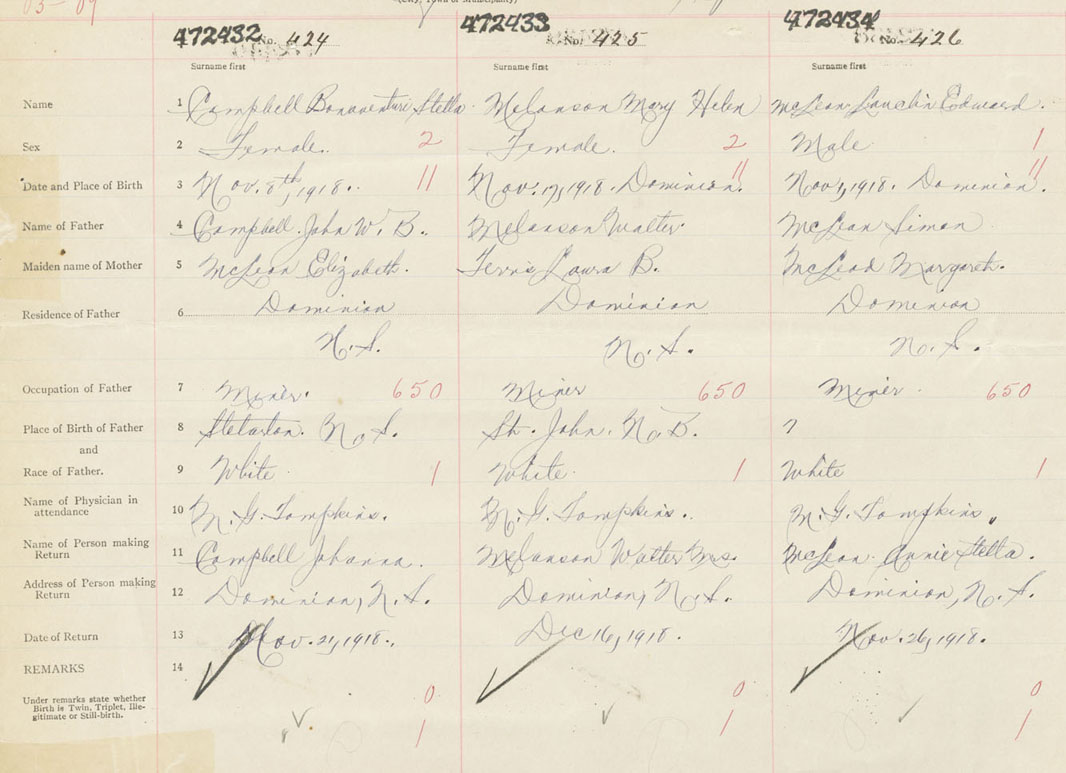 (City, Town or Municipality)
472432 No. 424 472433 No. 425 472434 No. 426
Surname first Surname first Surname first
Name 1 Campbell Bonaventuri Stella Melanson Mary Helen McLean Lauchlin Edward.
Sex 2 Female. 2 Female. 2 Male 1
Date and Place of Birth 3 Nov. 8th, 1918. 11 Nov. 17, 1918. Dominion. 11 Nov 1, 1918. Dominion. 11
Name of Father 4 Campbell. John W. B. Melanson Walter. McLean Simon
Maiden name of Mother 5 McLean Elizabeth. Ferris Laura B. McLeod Margaret.
Residence of Father 6 Dominion Dominion Dominion
N. S. N. S. N. S.
Occupation of Father 7 Miner. 650 Miner 650 Miner. 650
Place of Birth of Father 8 Stelarton. N. S. St. John. N. B. ?
and
Race of Father. 9 White 1 White. 1 White 1
Name of Physician in attendance 10 M. G. Tompkins. M. G. Tompkins. M. G. Tompkins.
Name of Person making Return 11 Campbell Johanna. Melanson Walter Mrs. McLean. Annie Stella.
Address of Person making Return 12 Dominion, N. S. Dominion, N. S. Dominion, N. S.
Date of Return 13 Nov. 21, 1918. Dec 16, 1918. Nov. 26, 1918.
REMARKS 14
Under remarks state whether 0 0 0
Birth is Twin, Triplet, Ille-
gitimate or Still-birth. 1 1 1